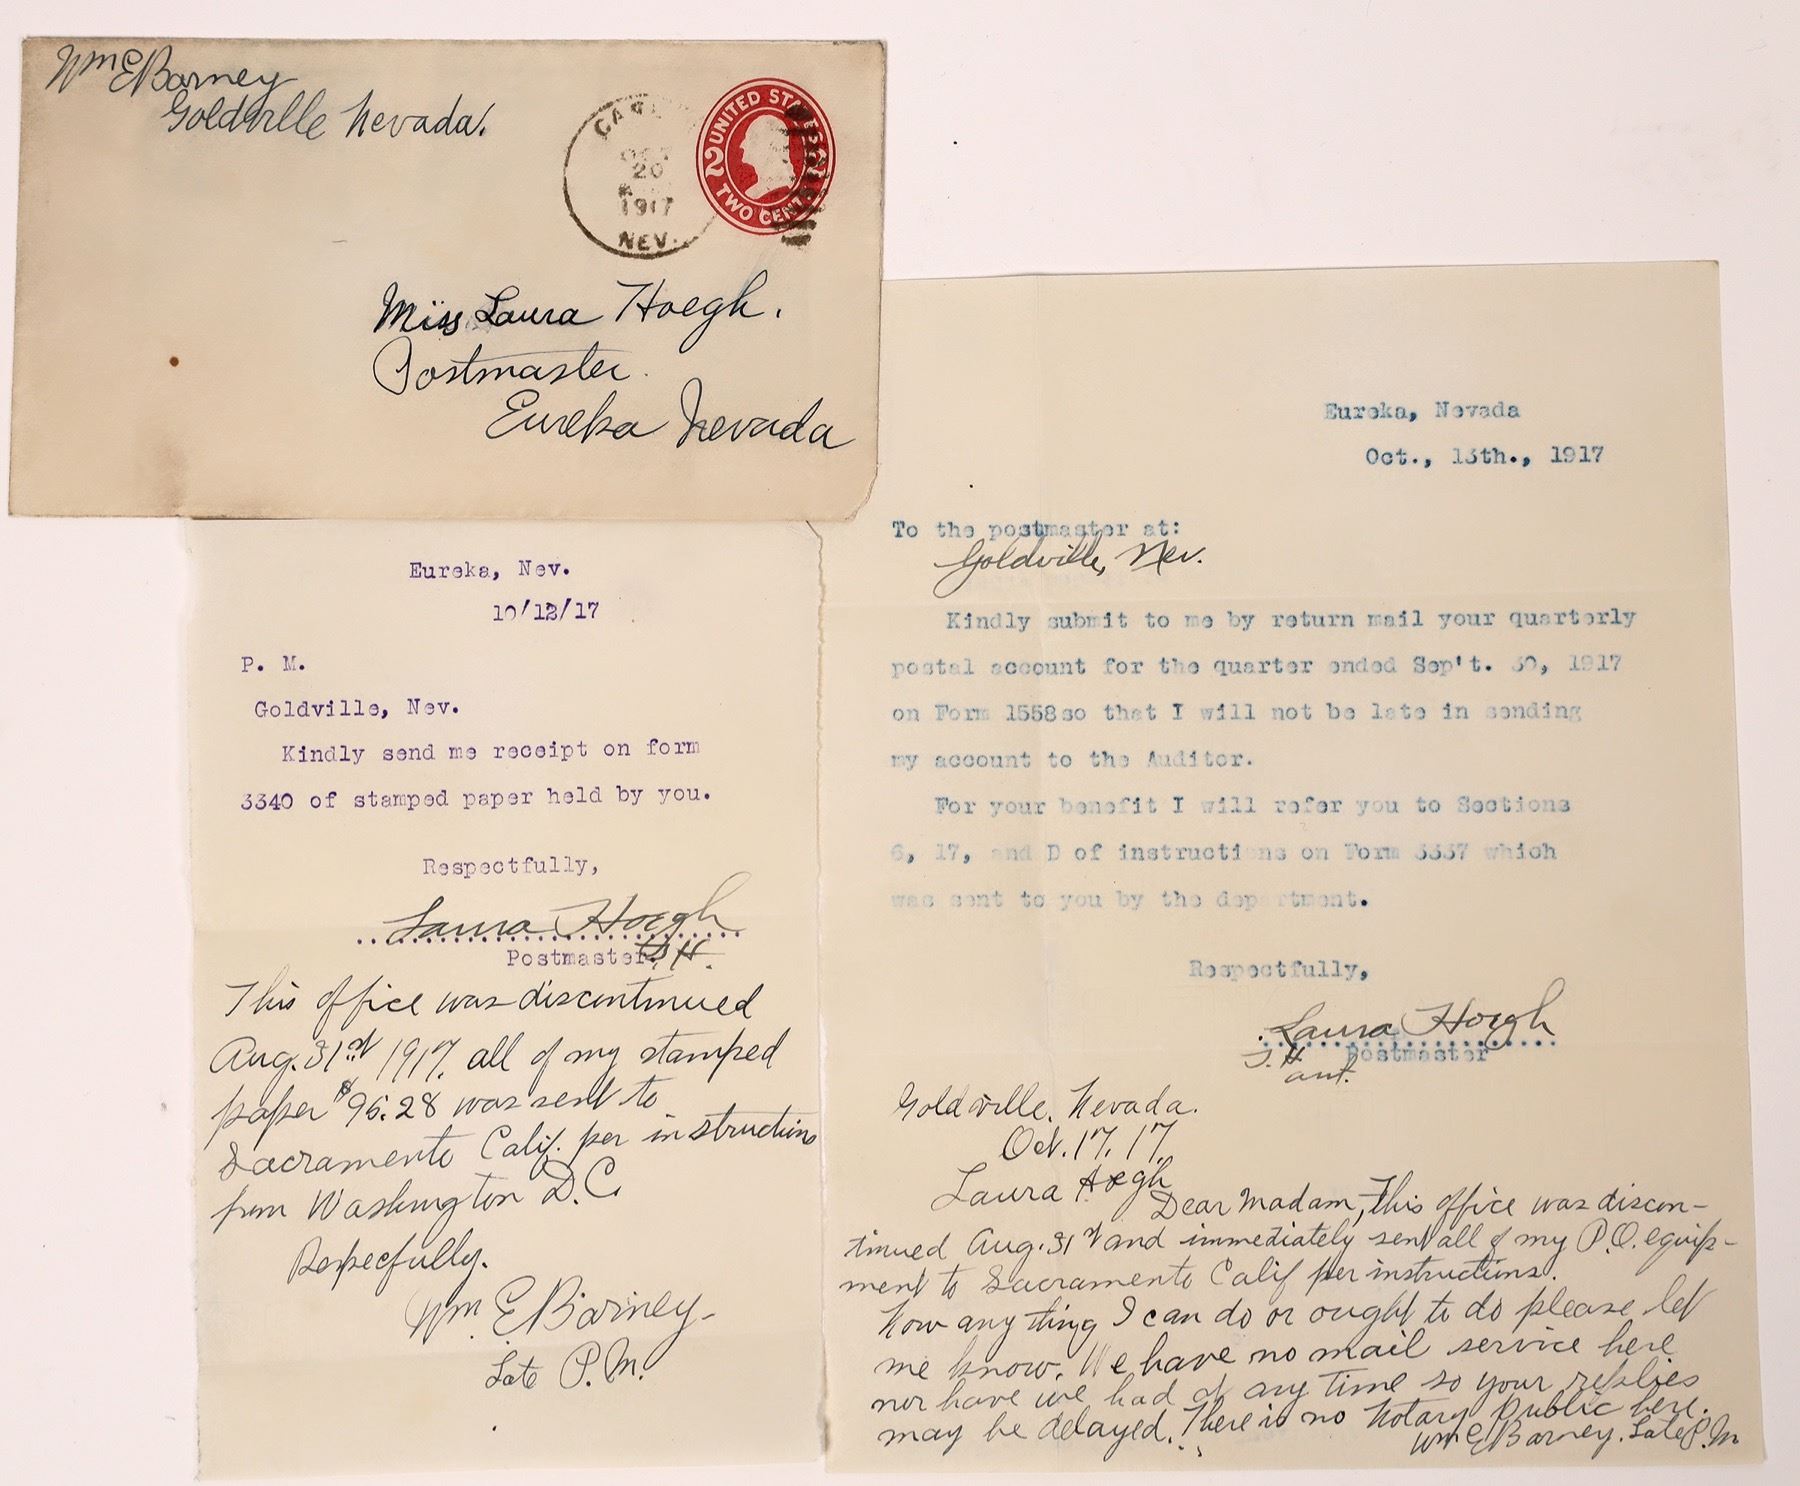 Wm E Barney
Goldville Nevada.
OCT
20
1917
NEV.
UNITED STATES
2 2
TWO CENTS
Miss Laura Hoegh.
Postmaster.
Eureka Nevada
Eureka, Nev.
10/12/17
P. M.
Goldville, Nev.
Kindly send me receipt on form
3340 of stamped paper held by you.
Respectfully,
Laura Hoegh
Postmaster.
This office was discontinued
Aug. 31st 1917. all of my stamped
paper $95.28 was sent to
Sacramento Calif. per instructions
from Washington D.C.
Respecfully.
Wm E Barney-
Late P.M.
Eureka, Nevada
Oct., 13th., 1917
To the postmaster at:
Goldville, Nev.
Kindly submit to me by return mail your quarterly
postal account for the quarter ended Sep't. 30, 1917
on Form 1558 so that I will not be late in sending
my account to the Auditor.
For your benefit I will refer you to Sections
6, 17, and D of instructions on Form 3337 which
was sent to you by the department.
Respectfully,
Laura Hoegh
Postmaster
Goldville, Nevada.
Oct. 17. 17.
Laura Hoegh
Dear Madam, This office was discon-
tinued Aug. 31st and immediately sent all of my P.O. equip-
ment to Sacramento Calif per instructions.
Now any thing I can do or ought to do please let
me know. We have no mail service here
nor have we had at any time so your replies
may be delayed. There is no Notary Public here.
Wm E Barney. Late P.M